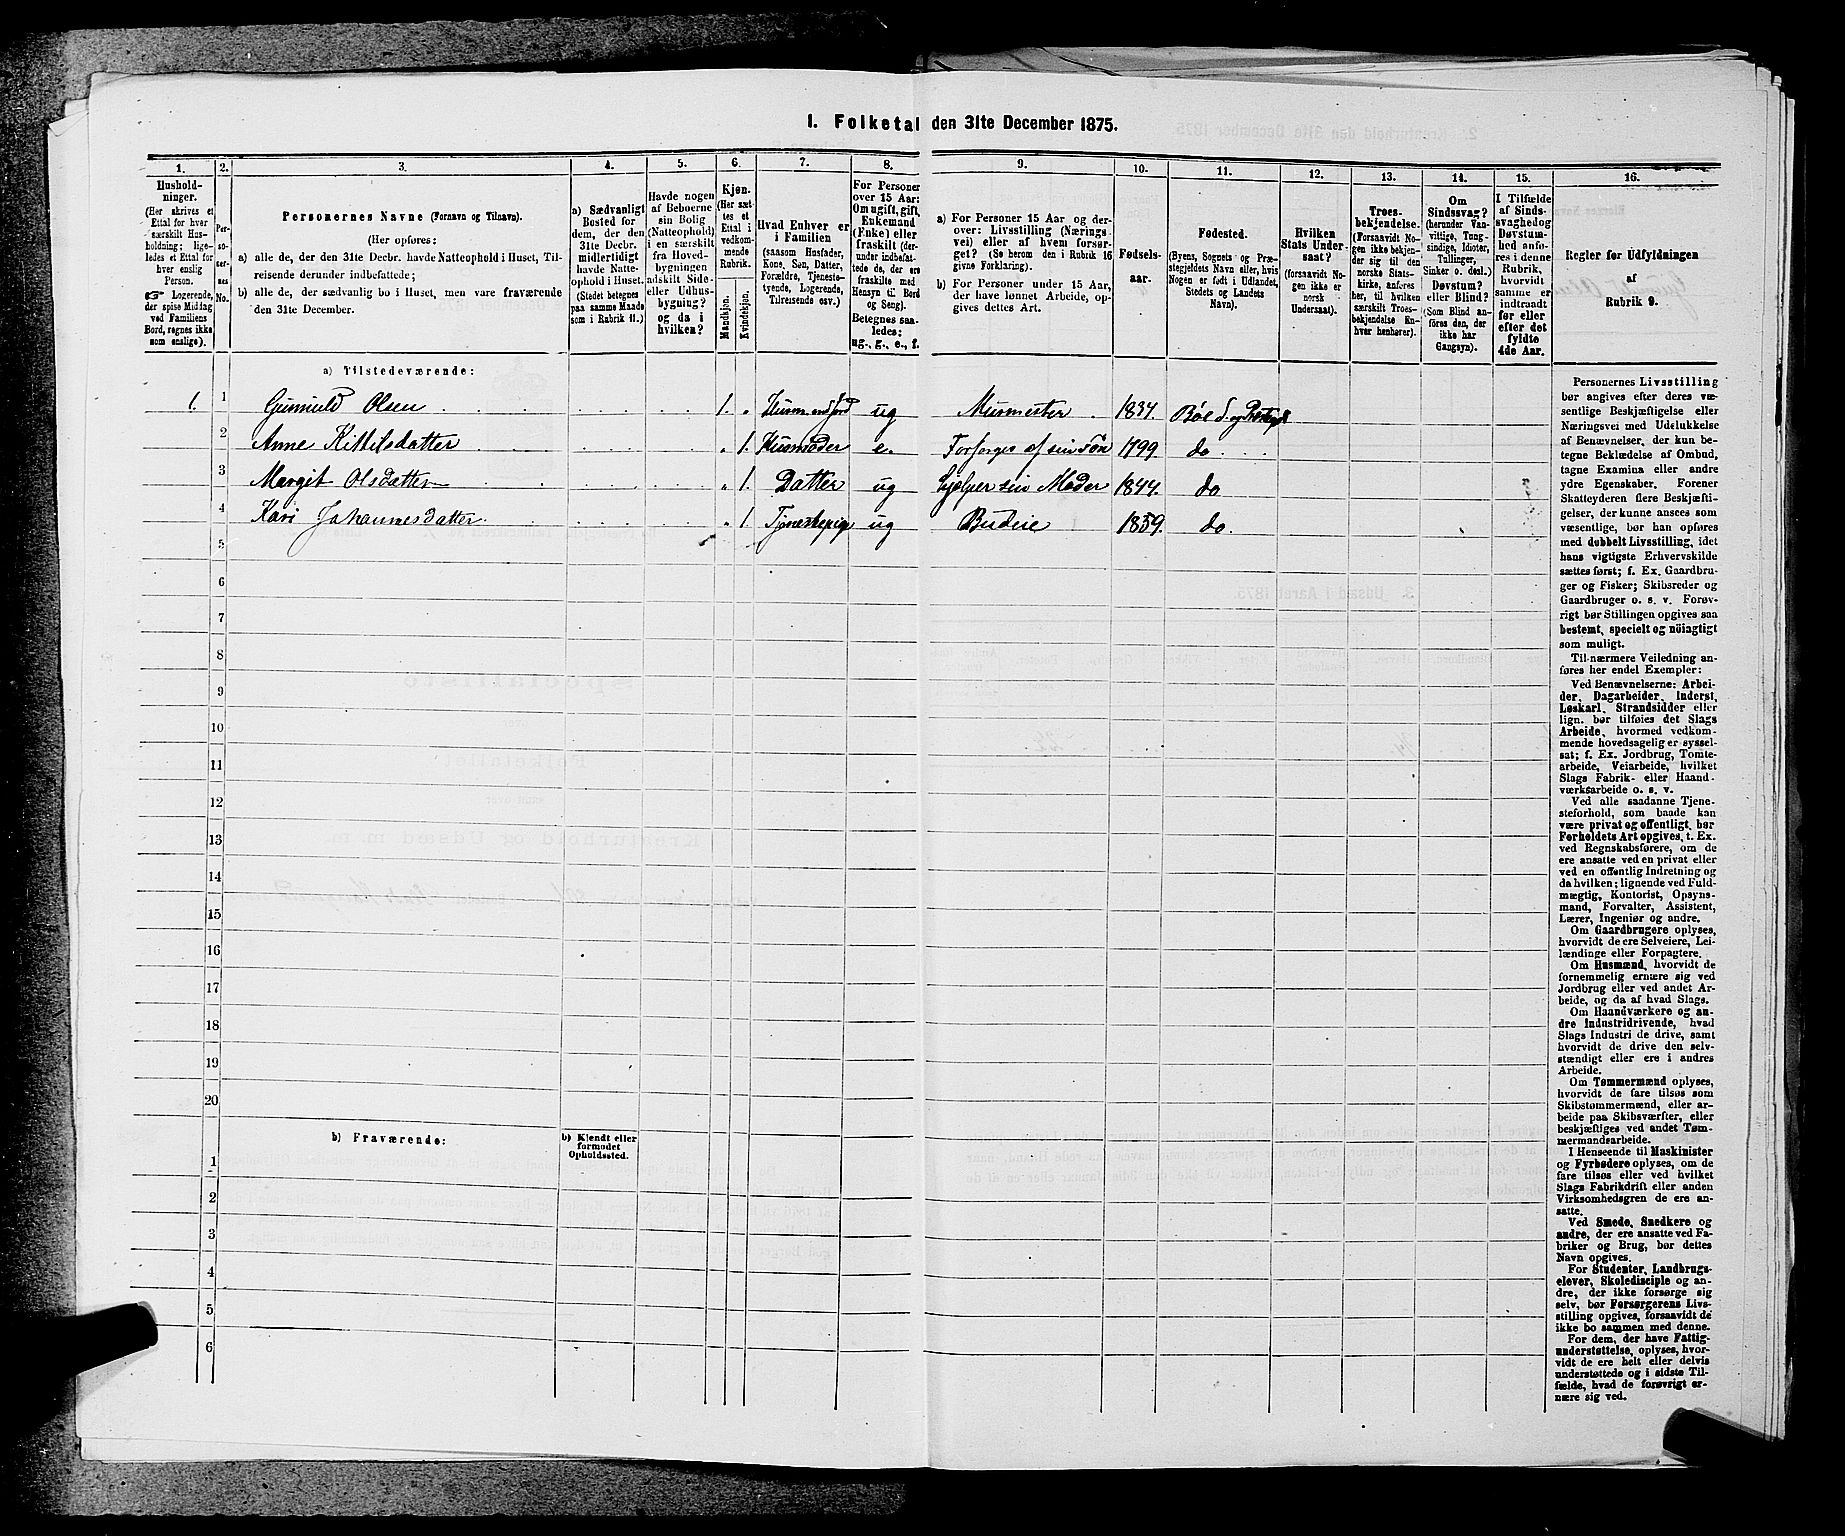 1. Folketal den 31te December 1875.
1. 2. 3. 4. 5. 6. 7. 8. 9. 10. 11. 12. 13. 14. 15. 16.
Hushold-
ninger.
(Her skrives et
Ettal for hver
særskilt Hus-
holdning; lige-
ledes et Ettal for
hver enslig
Person.
☞ Logerende,
der spise Middag
ved Familiens
Bord, regnes ikke
som enslige).
Per-
so-
ner-
nes
No.
Personernes Navne (Fornavn og Tilnavn).
(Her opføres:
a) alle de, der den 31te Decbr. havde Natteophold i Huset, Til-
reisende derunder indbefattede;
b) alle de, der sædvanlig bo i Huset, men vare fraværende
den 31te December.
a) Sædvanligt
Bosted for
dem, der den
31te Decbr.
midlertidigt
havde Natte-
ophold i Huset.
(Stedet betegnes
paa samme Maade
som i Rubrik 11.)
Havde nogen
af Beboerne
sin Bolig
(Natteophold)
i en særskilt
fra Hoved-
bygningen
adskilt Side-
eller Udhus-
bygning?
og da i
hvilken?
Kjøn.
(Her sæt-
tes et
Ettal i
vedkom-
mende
Rubrik.
Mandkjøn.
Kvindekjøn.
Hvad Enhver er
i Familien
(saasom Husfader,
Kone, Søn, Datter,
Forældre, Tjeneste-
tyende, Logerende,
Tilreisende osv.)
For Personer
over 15 Aar:
Om ugift, gift,
Enkemand
(Enke) eller
fraskilt (der-
under indbefat-
tede de, der ere
fraskilte med
Hensyn til Bord
og Seng).
Betegnes saa-
ledes:
ug., g., e., f.
a) For Personer 15 Aar og der-
over: Livsstilling (Nærings-
vei) eller af hvem forsør-
get? (Se herom den i Rubrik 16
givne Forklaring).
b) For Personer under 15 Aar,
der have lønnet Arbeide, op-
gives dettes Art.
Fødsels-
aar.
Fødested.
(Byens, Sognets og Præ-
stegjeldets Navn eller, hvis
Nogen er født i Udlandet,
Stedets og Landets
Navn).
Hvilken
Stats Under-
saat?
(forsaavidt No-
gen ikke er
norsk
Undersaat).
Troes-
bekjendelse.
(Forsaavidt No-
gen ikke bekjen-
der sig til den
norske Stats-
kirke, anføres
her, til hvilken
særskilt Troes-
bekjendelse En-
hver henhører).
Om
Sindssvag?
(herunder Van-
vittige, Tung-
sindige, Idioter,
Tullinger,
Sinker o. desl.)
Døvstum?
eller Blind?
(Som Blind an-
føres den, der
ikke har
Gangsyn).
I Tilfælde
af Sinds-
svaghed og
Døvstum-
hed anfø-
res i denne
Rubrik,
hvorvidt
samme er
indtraadt
før eller
efter det
fyldte
4de Aar.
Regler for Udfyldningen
af
Rubrik 9.
a) Tilstedeværende:
1. 1 Gunnuld Olsen 1. Husm. ug Murmester 1834. Bøe
2 Anne Kittilsdatter 1. Husmoder e. Forsørges af sin Søn 1799. do
3 Margit Olsdatter 1. Datter ug hjelper sin Moder 1844. do
4 Kari Johannesdatter 1. ug Budeie 1859. do.
5
6
7
8
9
10
11
12
13
14
15
16
17
18
19
20
b) Fraværende:
b) Kjendt eller
formodet
Opholdssted.
1
2
3
4
5
6
Personernes Livsstilling
bør angives efter deres væ-
sentlige Beskjæftigelse eller
Næringsvei med Udelukkelse
af Benævnelser, der kun be-
tegne Beklædelse af Ombud,
tagne Examina eller andre
ydre Egenskaber. Forener
Skatteyderen flere Beskjæfti-
gelser, der kunne ansees som
væsentlige, bør han opføres
med dobbelt Livsstilling, idet
hans vigtigste Erhvervskilde
sættes først; f. Ex. Gaardbru-
ger og Fisker; Skibsreder og
Gaardbruger o. s. v. Forøv-
rigt bør Stillingen opgives saa
bestemt, specielt og nöiagtigt
som muligt.
Til nærmere Veiledning an-
føres her endel Exempler:
Ved Benævnelserne: Arbei-
der, Dagarbeider, Inderst,
Løskarl, Strandsidder eller
lign. bør tilføies det Slags
Arbeide, hvormed vedkom-
mende hovedsagelig er syssel-
sat; f. Ex. Jordbrug, Tomte-
arbeide, Veiarbeide, hvilket
Slags Fabrik- eller Haand-
værksarbeide o. s. v.
Ved alle saadanne Tjene-
steforhold, som baade kan
være privat og offentligt, bør
Forholdets Art opgives, t. Ex.
ved Regnskabsførere, om de
ere ansatte ved en privat eller
ved en offentlig Indretning og
da hvilken; lignende ved Fuld-
mægtig, Kontorist, Opsyns-
mand, Forvalter, Assistent,
Lærer, Ingeniør og andre.
Om Gaardbrugere oplyses,
hvorvidt de ere Selveiere, Lei-
lændinge eller Forpagtere.
Om Husmænd, hvorvidt de
fornemmelig ernære sig ved
Jordbrug eller ved andet Ar-
beide, og da af hvad Slags.
Om Haandværkere og an-
dre Industridrivende, hvad
Slags Industri de drive, samt
hvorvidt de drive den selv-
stændigt eller ere i andres
Arbeide.
Om Tømmermænd oplyses,
hvorvidt de fare tilsøs som
Skibstømmermænd, eller ar-
beide paa Skibsværfter, eller
beskjæftiges ved andet Tøm-
mermandsarbeide.
I Henseende til Maskinister
og Fyrbødere oplyses, om de
fare tilsøs eller ved hvilket
Slags Fabrikdrift eller anden
Virksomhedsgren de ere an-
satte.
Ved Smede, Snedkere og
andre, der ere ansatte ved Fa-
briker og Brug, bør dettes
Navn opgives.
For Studenter, Landbrugs-
elever, Skoledisciple og an-
dre, der ikke forsørge sig
selv, bør Forsørgerens Livs-
stilling opgives, forsaavidt de
ikke bo sammen med denne.
For dem, der have Fattig-
understøttelse, oplyses, hvor-
vidt de ere helt eller delvis
understøttede og i sidste Til-
fælde, hvad de forøvrigt er-
nære sig ved.